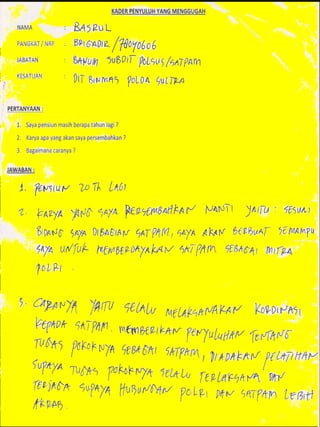 KADER PENYULUH YANG MENGGUGAH
NAMA : BASRUL
PANGKAT / NRP : BRIGADIR / 78040606
JABATAN : BANUM SUBDIT POLSUS/SATPAM
KESATUAN : DIT BINMAS POLDA SULTRA
PERTANYAAN :
1. Saya pensiun masih berapa tahun lagi ?
2. Karya apa yang akan saya persembahkan ?
3. Bagaimana caranya ?
JAWABAN :
1. PENSIUN 20 Th LAGI
2. KARYA YANG SAYA PERSEMBAHKAN NANTI YAITU : SESUAI
BIDANG SAYA DIBAGIAN SATPAM, SAYA AKAN BERBUAT SEMAMPU
SAYA UNTUK MEMBERDAYAKAN SATPAM SEBAGAI MITRA
POLRI
3. CARANYA YAITU SELALU MELAKSANAKAN KORDINASI
KEPADA SATPAM. MEMBERIKAN PENYULUHAN TENTANG
TUGAS POKOKNYA SEBAGAI SATPAM, DIADAKAN PELATIHAN
SUPAYA TUGAS POKOKNYA SELALU TERLAKSANA DAN
TERJAGA SUPAYA HUBUNGAN POLRI DAN SATPAM LEBIH
AKRAB.